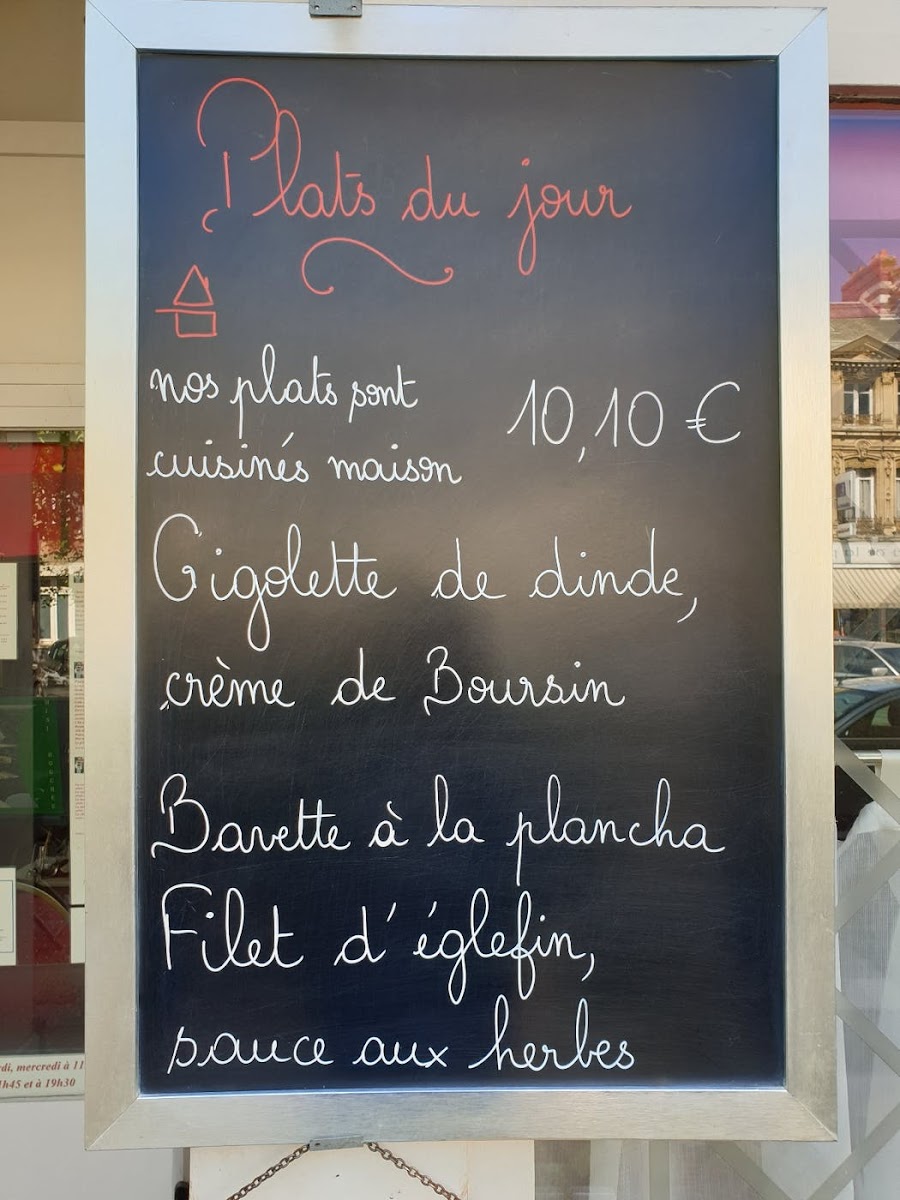 Plats du jour
nos plats sont
cuisinés maison
10,10 €
Gigolette de dinde,
crème de Boursin
Bavette à la plancha
Filet d'églefin,
sauce aux herbes
di, mercredi à 11
1h45 et à 19h30